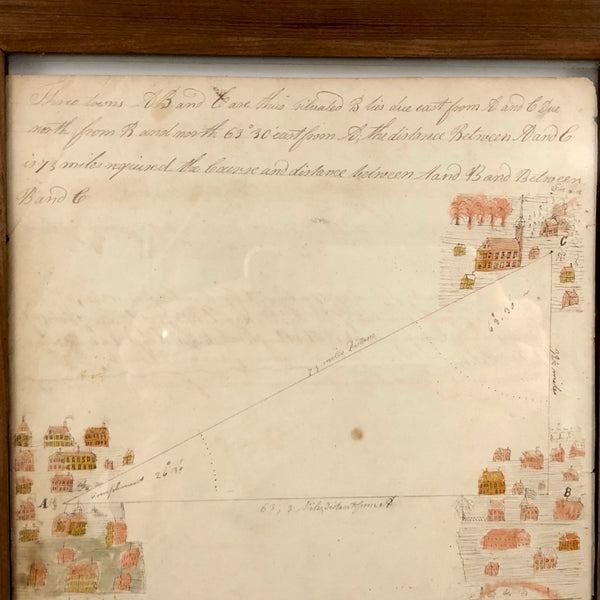 Three towns A B and C are thus situated B lies due east from A and C due
north from B and north 63°30' east from A, the distance Between A and C
is 73 miles required the Course and distance between A and B and Between
B and C
C
63°.30'
73 miles Distance
32½ miles
A
complement 26°30'
B
63,3 Miles distant from A